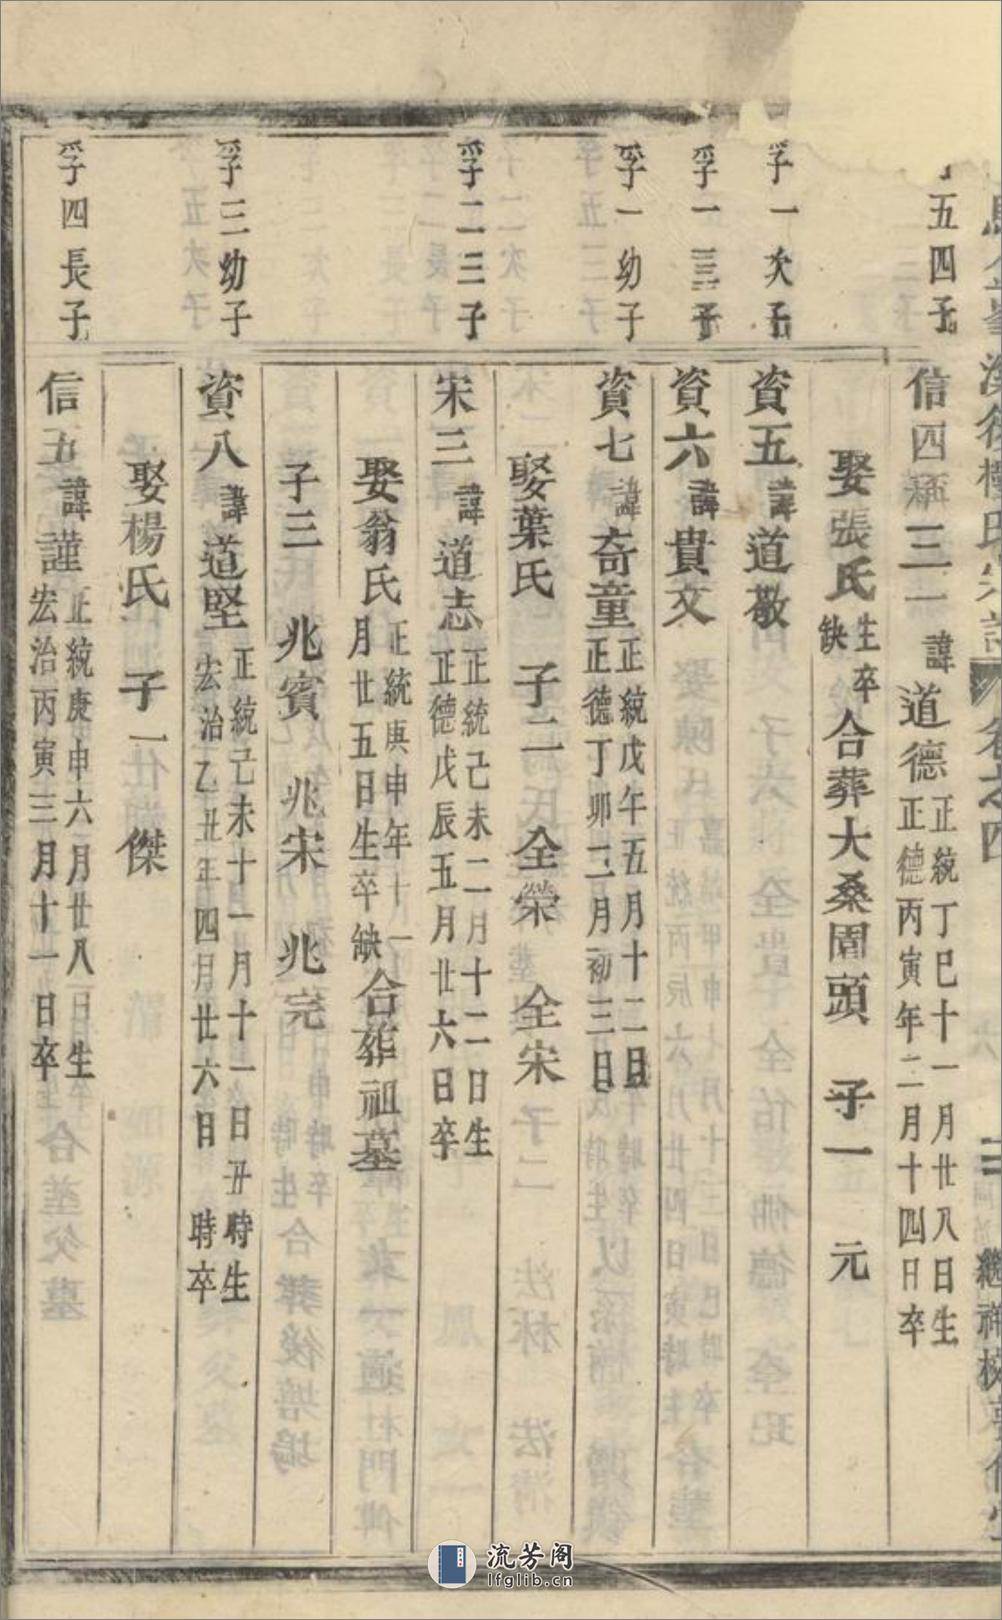 五四子
信四 三一 諱道德 正統丁巳十一月廿八日生 正德丙寅年二月十四日卒
娶張氏 生卒缺 合葬大桑園頭 子一 元
孚一次子
資五 諱道敬
孚一三子
資六 諱貴文
孚一幼子
資七 諱奇童 正統戊午五月十二日 正德丁卯三月初三日
娶葉氏 子二 全榮 全宋
孚二三子
宋三 諱道志 正統己未二月十二日生 正德戊辰五月廿六日卒
娶翁氏 正統庚申年十一月廿五日生卒缺 合葬祖墓
子三 兆賓 兆宋 兆完
孚三幼子
資八 諱道堅 正統己未十一月十一日丑時生 宏治乙丑年四月廿六日 時卒
娶楊氏 子一 傑
孚四長子
信五 諱謹 正統庚申六月廿八日生 宏治丙寅三月十一日卒
流芳阁
lfglib.cn